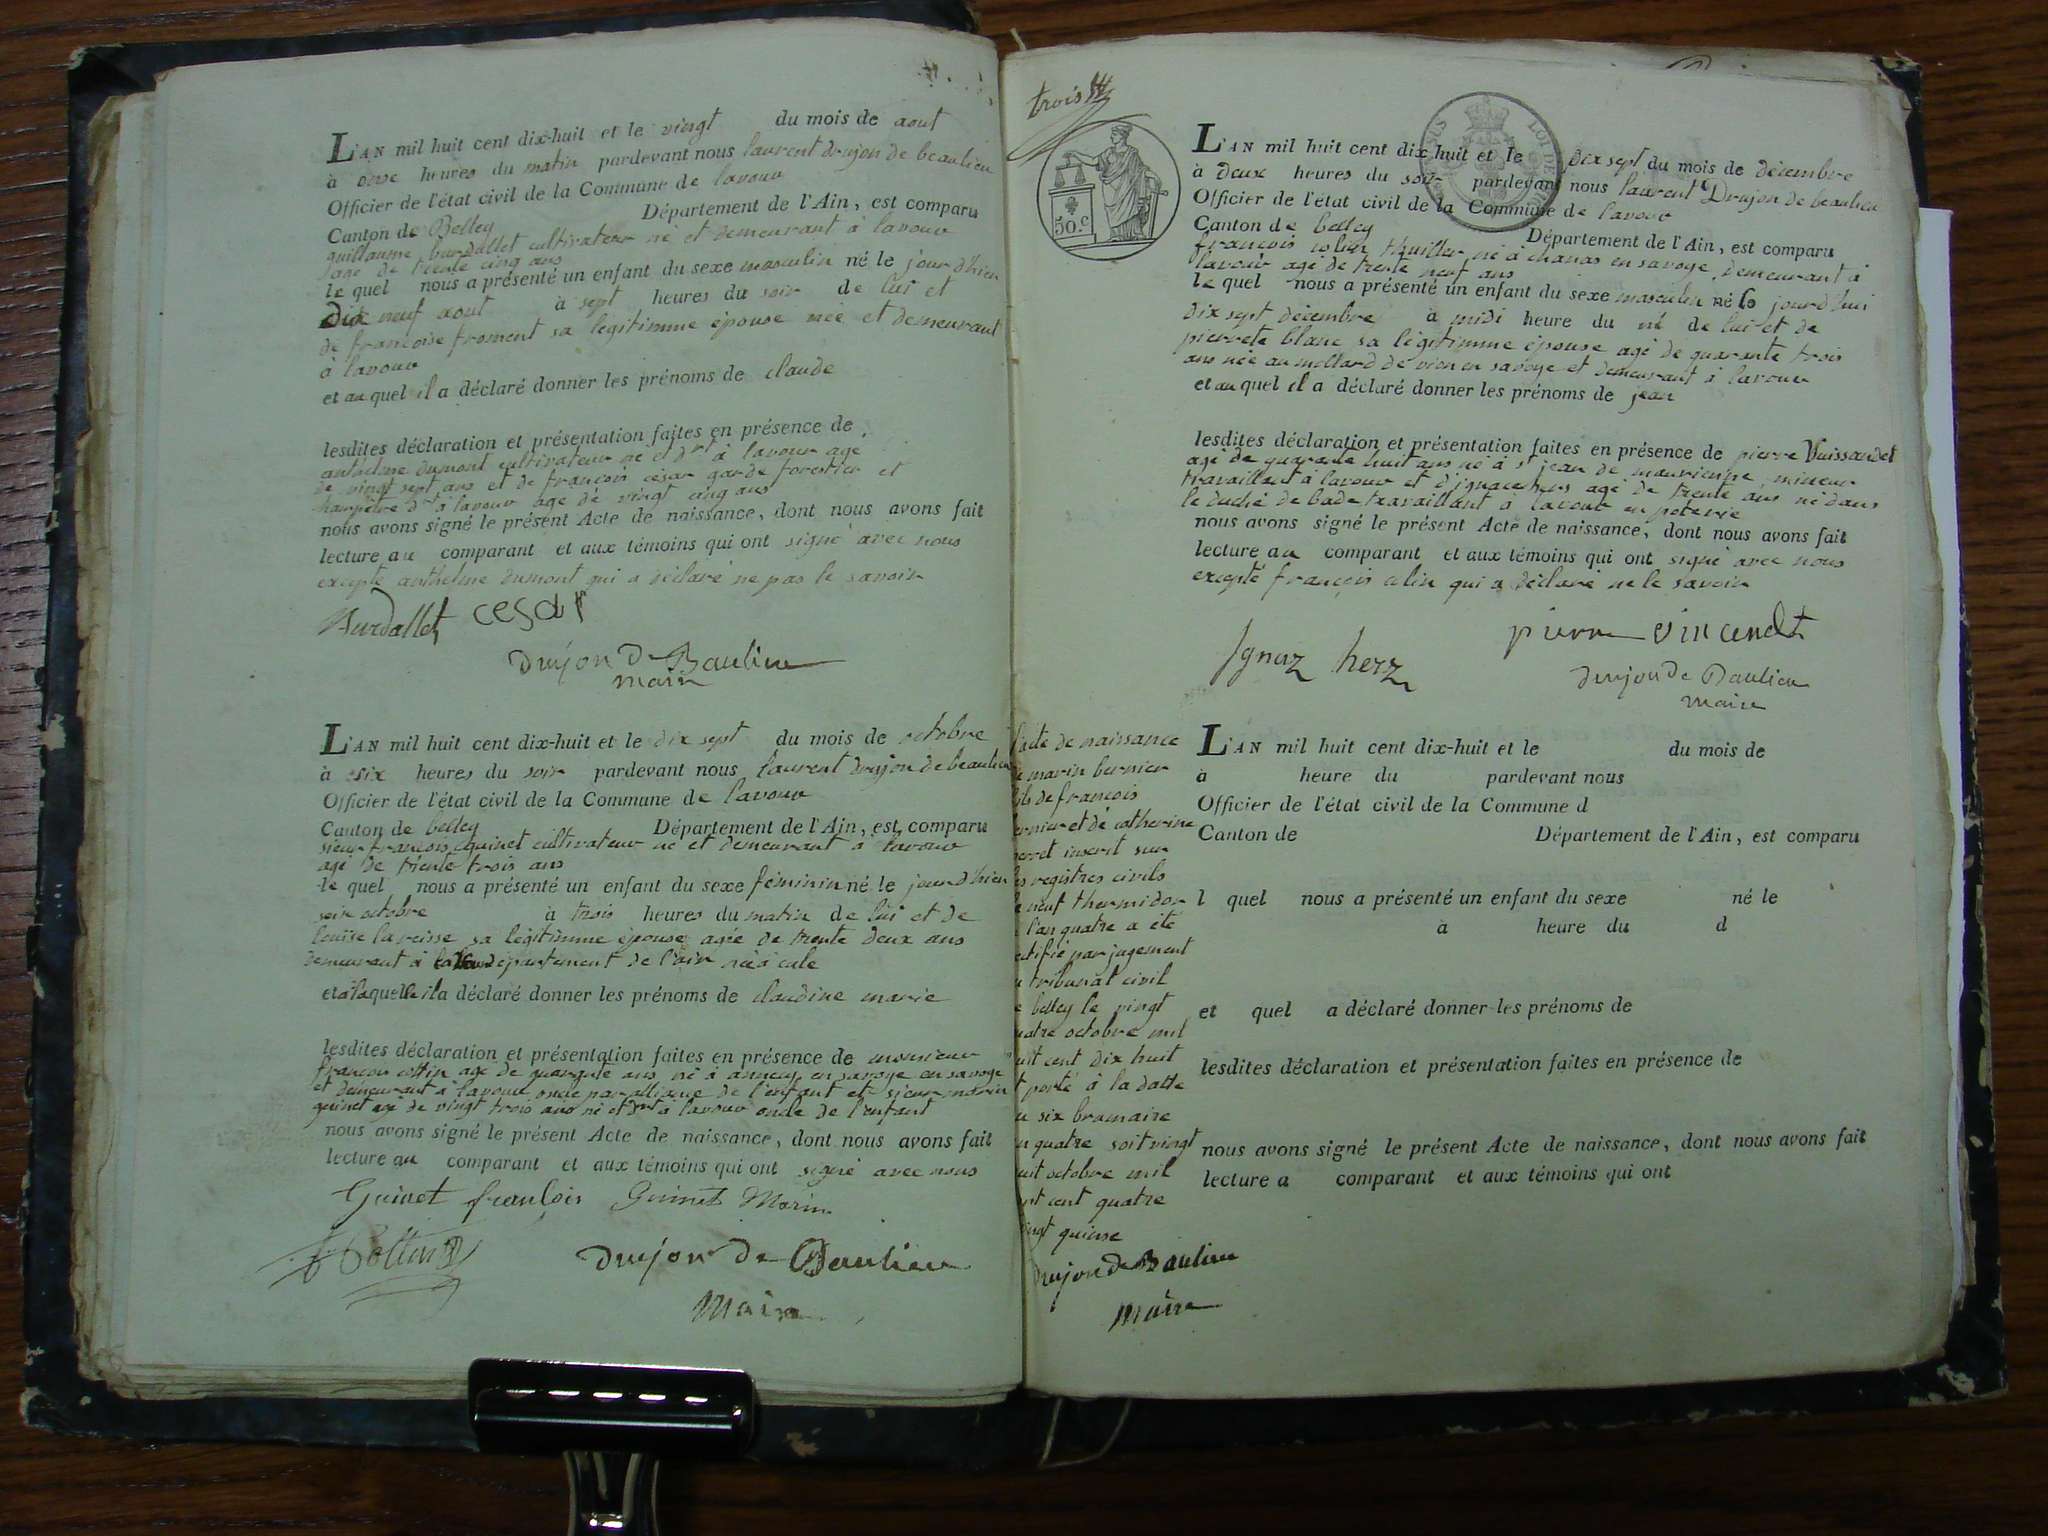 L'AN mil huit cent dix-huit et le vingt du mois de aout
à onze heures du matin pardevant nous laurent drujon de beaulieu
Officier de l'état civil de la Commune de lavour
Canton de Belley Département de l'Ain, est comparu
guillaume burdallet cultivateur né et demeurant à lavour
agé de trente cinq ans
le quel nous a présenté un enfant du sexe masculin né le jour d'hier
Dix neuf aout à sept heures du soir de lui et
de francoise froment sa legitimme épouse née et demeurant
à lavour
et au quel il a déclaré donner les prénoms de claude
lesdites déclaration et présentation faites en présence de
anthelme dumont cultivateur né et dmt à lavour age
de vingt sept ans et de francois césar garde forestier et
champetre dt à lavour age de vingt cinq ans
nous avons signé le présent Acte de naissance, dont nous avons fait
lecture au comparant et aux témoins qui ont signé avec nous
excepté anthelme dumont qui a déclaré ne pas le savoir
Burdallet cesar
drujon de Baulieu
maire
L'AN mil huit cent dix-huit et le dix sept du mois de octobre
à six heures du soir pardevant nous laurent drujon de beaulieu
Officier de l'état civil de la Commune de lavour
Canton de belley Département de l'Ain, est comparu
sieur francois guinet cultivateur né et demeurant à lavour
agé de trente trois ans
le quel nous a présenté un enfant du sexe féminin né le jour d'hier
seix octobre à trois heures du matin de lui et de
louise la reisse sa légitimme épouse agée de trente deux ans
demeurant à departement de l'ain née à cule
et à laquelle il a déclaré donner les prénoms de claudine marie
lesdites déclaration et présentation faites en présence de monsieur
francois cottin age de quarante ans né à annecy en savoye en savoye
et demeurant à lavour oncle par alliance de l'enfant et sieur marin
guinet agé de vingt trois ans né et dmt à lavour oncle de l'enfant
nous avons signé le présent Acte de naissance, dont nous avons fait
lecture au comparant et aux témoins qui ont signé avec nous
Guinet françois Guinet Marin
Cottin
drujon de Baulieu
Maire
trois
50.c
L'AN mil huit cent dix huit et le dix sept du mois de décembre
à deux heures du soir pardevant nous laurent Drujon de beaulieu
Officier de l'état civil de la Commune de lavour
Canton de belley Département de l'Ain, est comparu
francois colin thuillier né à chanas en savoye demeurant à
lavour agé de trente neuf ans
le quel nous a présenté un enfant du sexe masculin né le jourd'hui
dix sept décembre à midi heure du né de lui et de
pierrete blanc sa légitimme épouse agé de quarante trois
ans née au mollard de vion en savoye et demeurant à lavour
et au quel il a déclaré donner les prénoms de jean
lesdites déclaration et présentation faites en présence de pierre
agé de quarante huit ans né à st jean de maurienne mineur
travaillant à lavour et d'ignace hers agé de trente ans né dans
le duché de bade travaillant à lavour en poterie
nous avons signé le présent Acte de naissance, dont nous avons fait
lecture au comparant et aux témoins qui ont signé avec nous
excepté françois colin qui a déclaré ne le savoir
pierre vincendt
Ignaz herz
drujon de Baulieu
maire
l'acte de naissance
de marin bernier
fils de francois
bernier et de catherine
perret inscrit sur
les registres civils
le neuf thermidor
l'an quatre a été
rectifié par jugement
du tribunal civil
de belley le vingt
quatre octobre mil
huit cent dix huit
et porté à la datte
du six brumaire
an quatre soit vingt
huit octobre mil
sept cent quatre
vingt quinse
drujon de Baulieu
maire
L'AN mil huit cent dix-huit et le du mois de
à heure du pardevant nous
Officier de l'état civil de la Commune d
Canton de Département de l'Ain, est comparu
l quel nous a présenté un enfant du sexe né le
à heure du d
et quel a déclaré donner les prénoms de
lesdites déclaration et présentation faites en présence de
nous avons signé le présent Acte de naissance, dont nous avons fait
lecture a comparant et aux témoins qui ont